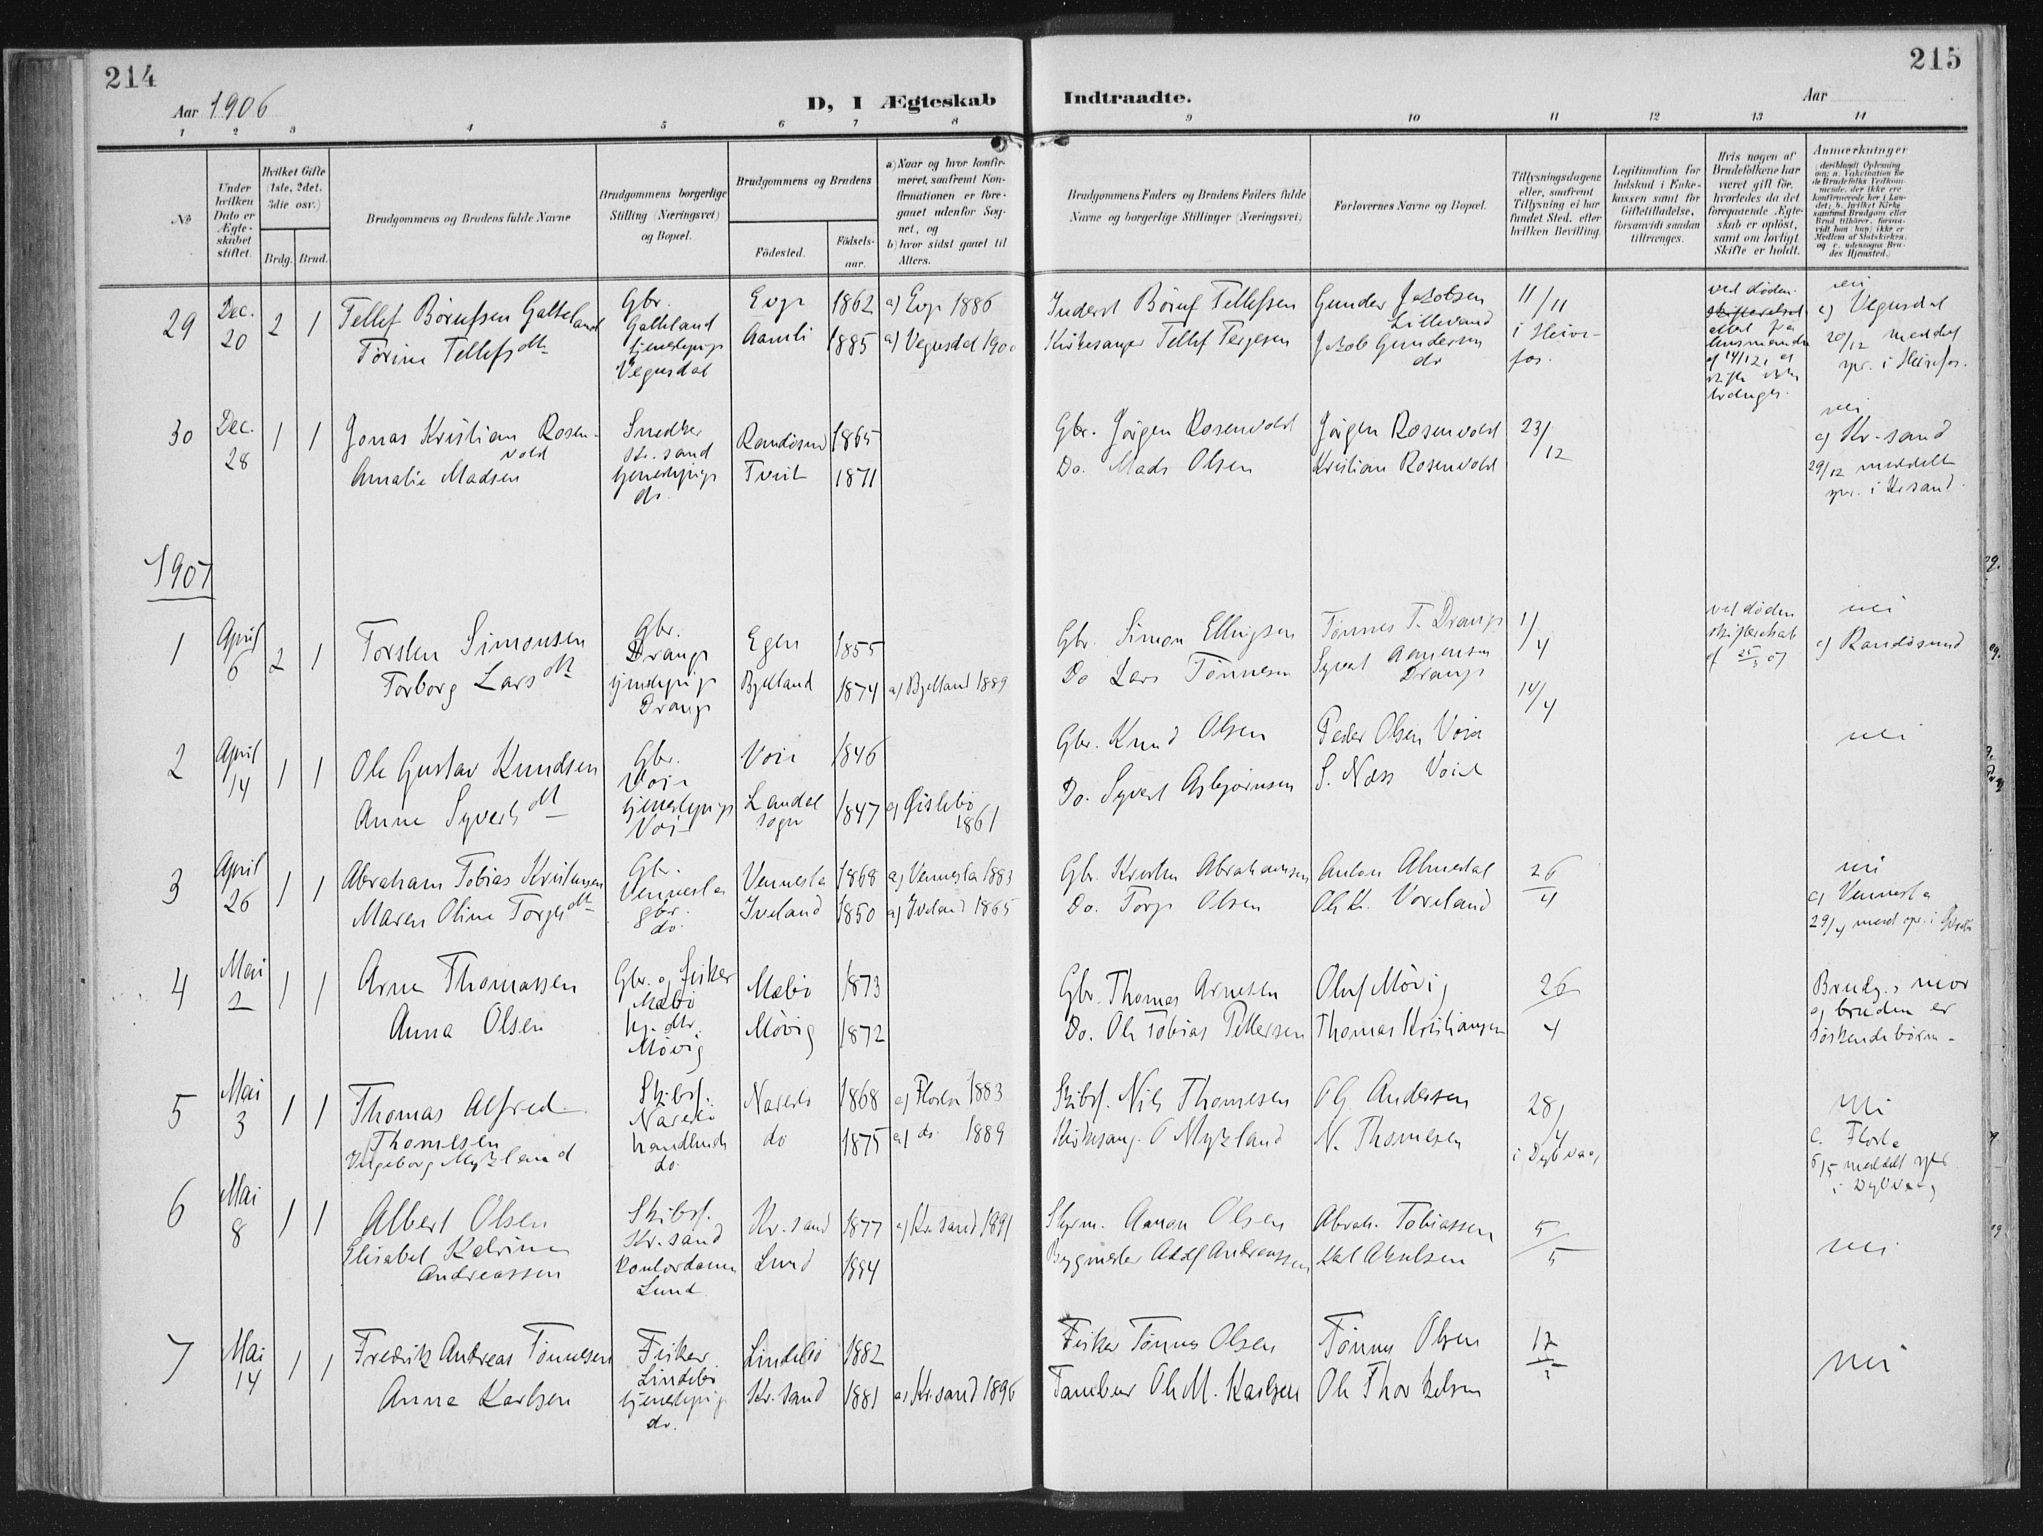 214
Aar 1906
D, I Ægteskab
Indtraadte.
Aar
215
1 2 3 4 5 6 7 8 9 10 11 12 13 14
No
Under hvilken Dato er Ægteskabet stiftet.
Hvilket Gifte (1ste, 2det, 3die osv.)
Brdg. Brud.
Brudgommens og Brudens fulde Navne
Brudgommens borgerlige Stilling (Næringsvei) og Bopæl.
Brudgommens og Brudens
Fødested.
Fødsels-aar.
a) Naar og hvor konfirmeret, saafremt Konfirmationen er foregaaet udenfor Sognet, og
b) hvor sidst gaaet til Alters.
Brudgommens Faders og Brudens Faders fulde Navne og borgerlige Stillinger (Næringsvei)
Forlovernes Navne og Bopæl.
Tillysningsdagene eller, saafremt Tillysning ei har fundet Sted, efter hvilken Bevilling.
Legitimation for Indskud i Enkekassen samt for Giftetilladelse, forsaavidt saadan tiltrænges.
Hvis nogen af Brudefolkene har været gift før, hvorledes da det foregaaende Ægteskab er opløst, samt om lovligt Skifte er holdt.
Anmærkninger
29 Dec. 20 2 1
Tellef Børufsen Gatteland Gbr. Gatteland Evje 1862 a) Evje 1886
Torine Tellefs dtr tjenestepige Vegusdal Aamli 1885 a) Vegusdal 190
Inderst Børuf Tellefsen Gunder Jakobsen Lillevand 11/11
Kirkesanger Tellef Terjesen Jakob Gundersen do i Heirefos.
ved døden
nei
c) Vegusdal
20/12 meddelt spr. i Heirefos.
30 Dec. 28 1 1
Jonas Kristian Rosenvold Snedker Kr.sand Randøsund 1865
Amalie Madsen tjenestepige do. Tveit 1871
Gbr. Jørgen Rosenvold Jørgen Rosenvold 23/12
Do. Mads Olsen Kristian Rosenvold
nei
c) Kr.sand
29/12 meddelt spr. i Kr.sand.
1907
1 April 6 2 1
Torsten Simonsen Gbr. Drange Egen 1855
Torborg Lars dtr tjenestepige Drange Bjelland 1874 a) Bjelland 1889
Gbr. Simon Ellingsen Tønnes T. Drange 1/4
Do Lars Tønnesen Syvert Drange
14/4
ved døden skifteattest af 25/3 07
nei
c) Randøsund
2 April 14 1 1
Ole Gustav Knudsen Gbr. Voie Voie 1846
Anne Syverts dtr tjenestepige Voie Landal sogn 1847 a) Øislebø 1861
Gbr. Knud Olsen Peder Olsen Voie
Do. Syvert Asbjørnsen S. Næss Voie
nei
3 April 26 1 1
Abraham Tobias Kristensen Gbr. Vennesla Vennesla 1868 a) Vennesla 1883
Maren Oline Torges dtr gbr. do. Iveland 1850 a) Iveland 1865
Gbr. Kristen Abrahamsen Anton Almedal 26/4
Do. Torje Olsen Ole K. Voreland
nei
c) Vennesla
29/4 medd spr. i
4 Mai 2 1 1
Arne Thomassen Gbr. og fisker Mæbø Mæbø 1873
Anna Olsen tj. dtr. Møvig Møvig 1872
Gbr. Thomas Arnesen Oluf Møvig 26/4
Do. Ole Tobias Pettersen Thomas Kristiansen
Brudg.s mor og bruden er søskendebørn.
5 Mai 3 1 1
Thomas Alfred Thomesen Skibsf. Narestø Narestø 1868 a) Flosta 1883
Ingeborg Mykland handlende do. do 1875 a) do. 1889
Skibsf. Nils Thomesen Ole Andersen 28/4
Kirkesang. O Mykland N. Thomesen i Dybvaag
nei
c. Flosta
6/5 meddelt spr. i Dybvaag
6 Mai 8 1 1
Albert Olsen Skibsf. Kr.sand Kr.sand 1877 a) Kr.sand 1891
Elisabet Katrine Andreassen kontordame Lund Lund 1884
Styrm. Aanon Olsen Abrah. Tobiassen 5/5
Bygmester Adolf Andreassen
nei
7 Mai 14 1 1
Fredrik Andreas Tønnesen Fisker Lindebø Lindebø 1882
Anna Karlsen tjenestepige do. Kr.sand 1881 a) Kr.sand 1896
Fisker Tønnes Olsen Tønnes Olsen 12
Tambur Ole M. Karlsen Ole Thorkelsen
nei